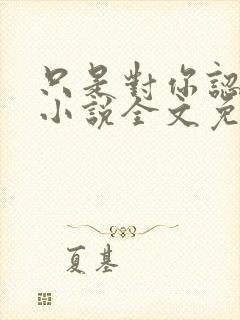 只是對你認
小說全文免
夏基